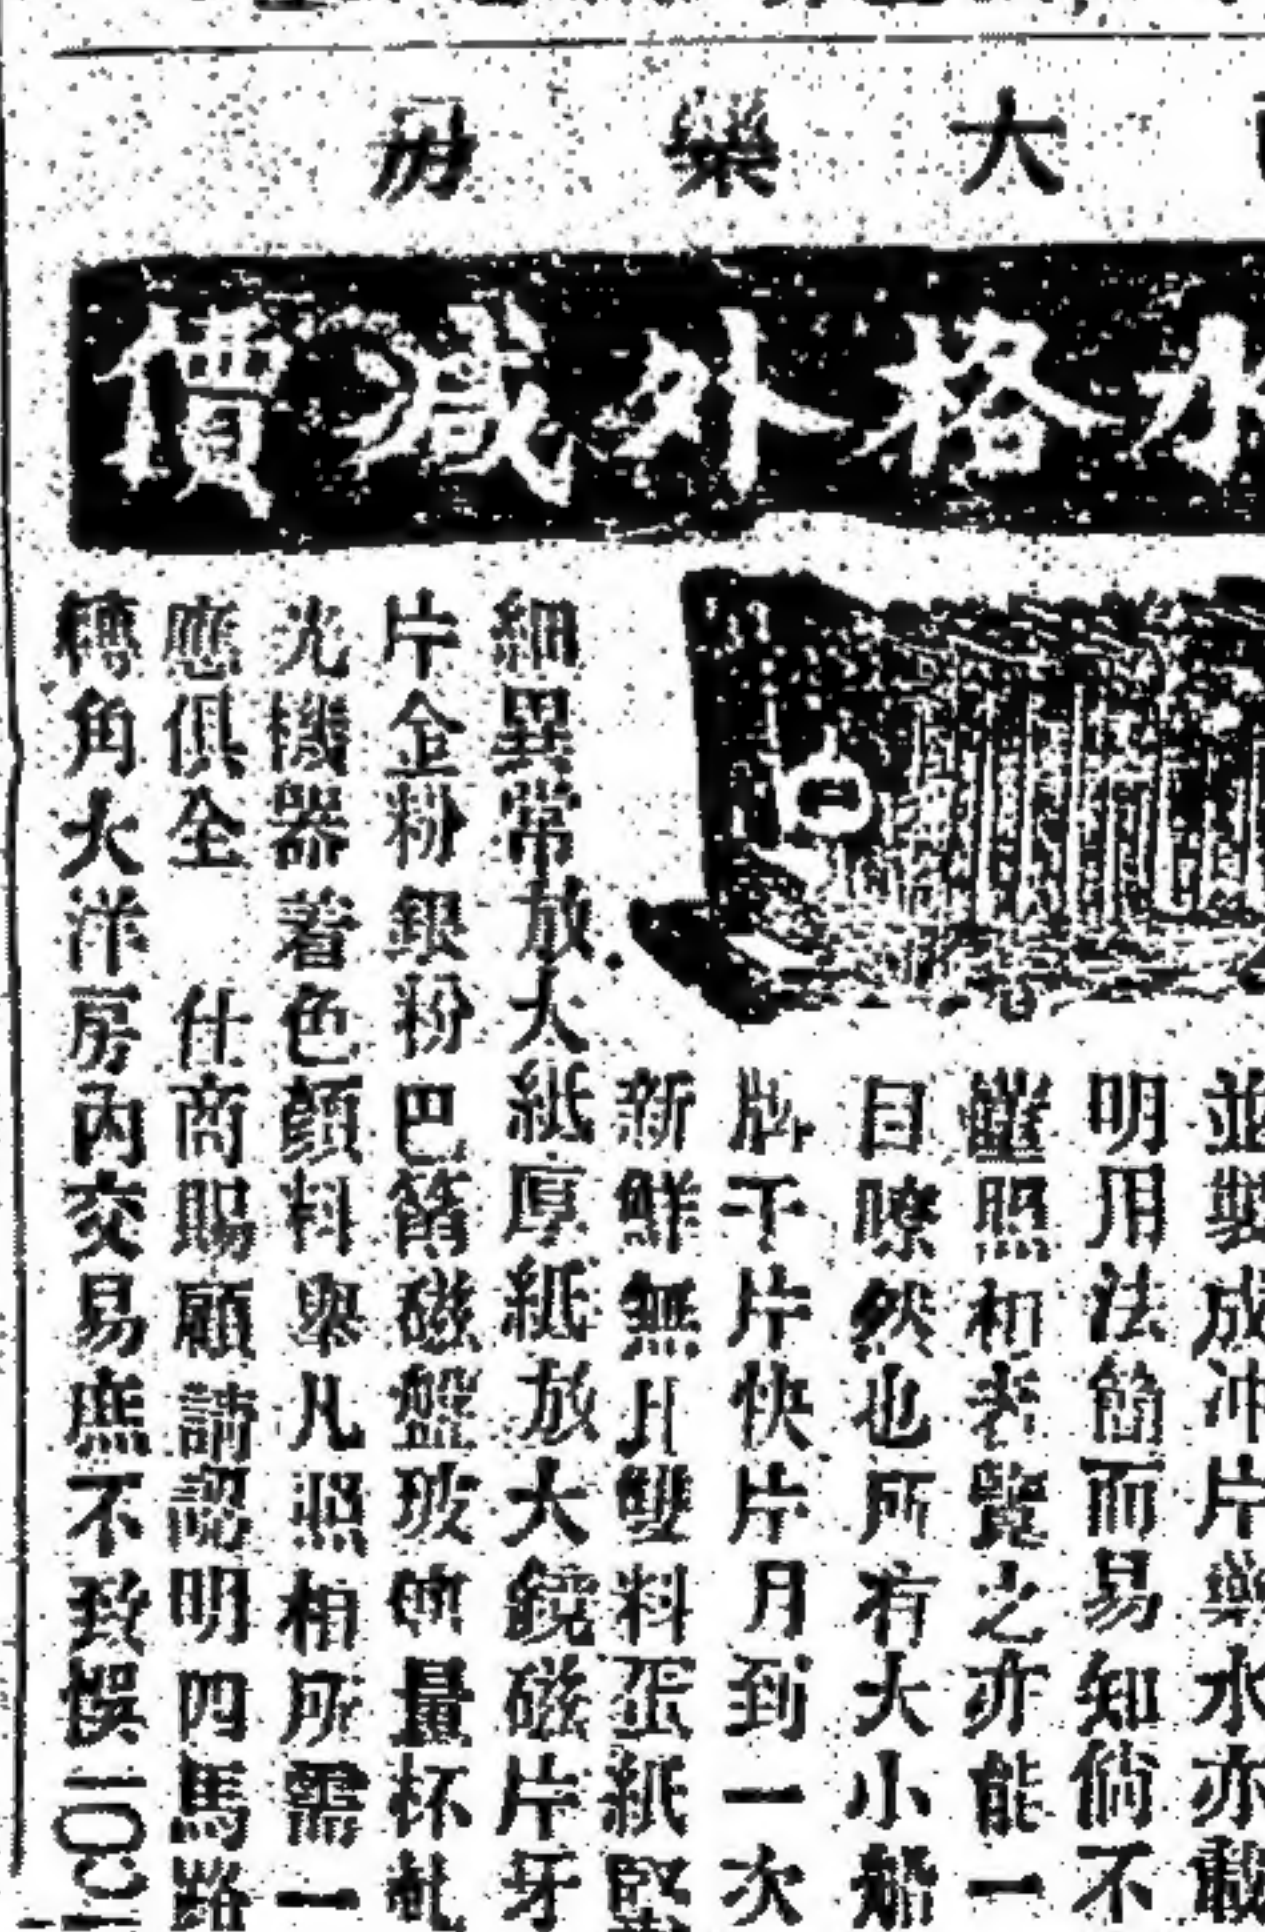 大藥房
水格外減價
並製成冲片藥水亦載
明用法簡而易知倘不
諳照相者覽之亦能一
目瞭然也所有大小船
牌干片快片月到一次
新鮮無比雙料蛋紙堅
細異常放大紙厚紙放大鏡磁片牙
片金粉銀粉巴筒磁盤玻璃量杯乾
光機器著色顏料與凡照相所需一
應俱全 仕商賜顧請認明四馬路
轉角大洋房內交易庶不致悞